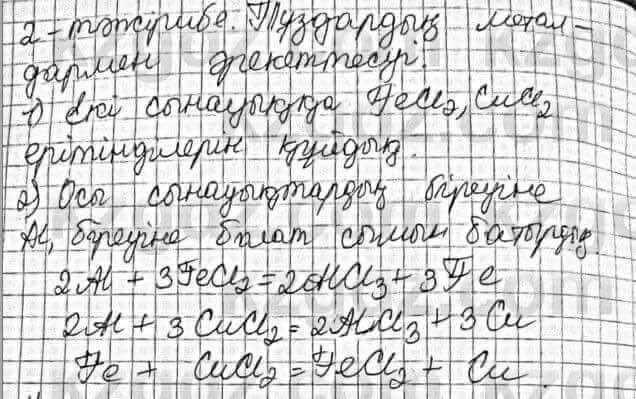 2-тәжірибе. Тұздардың метал-
дармен әрекеттесуі.
1) Екі сынауыққа FeCl2, CuCl2
ерітінділерін құйдық.
2) Осы сынауықтардың біреуіне
Al, біреуіне болат сымын батырдық.
2Al + 3FeCl2 = 2AlCl3 + 3Fe
2Al + 3CuCl2 = 2AlCl3 + 3Cu
Fe + CuCl2 = FeCl2 + Cu